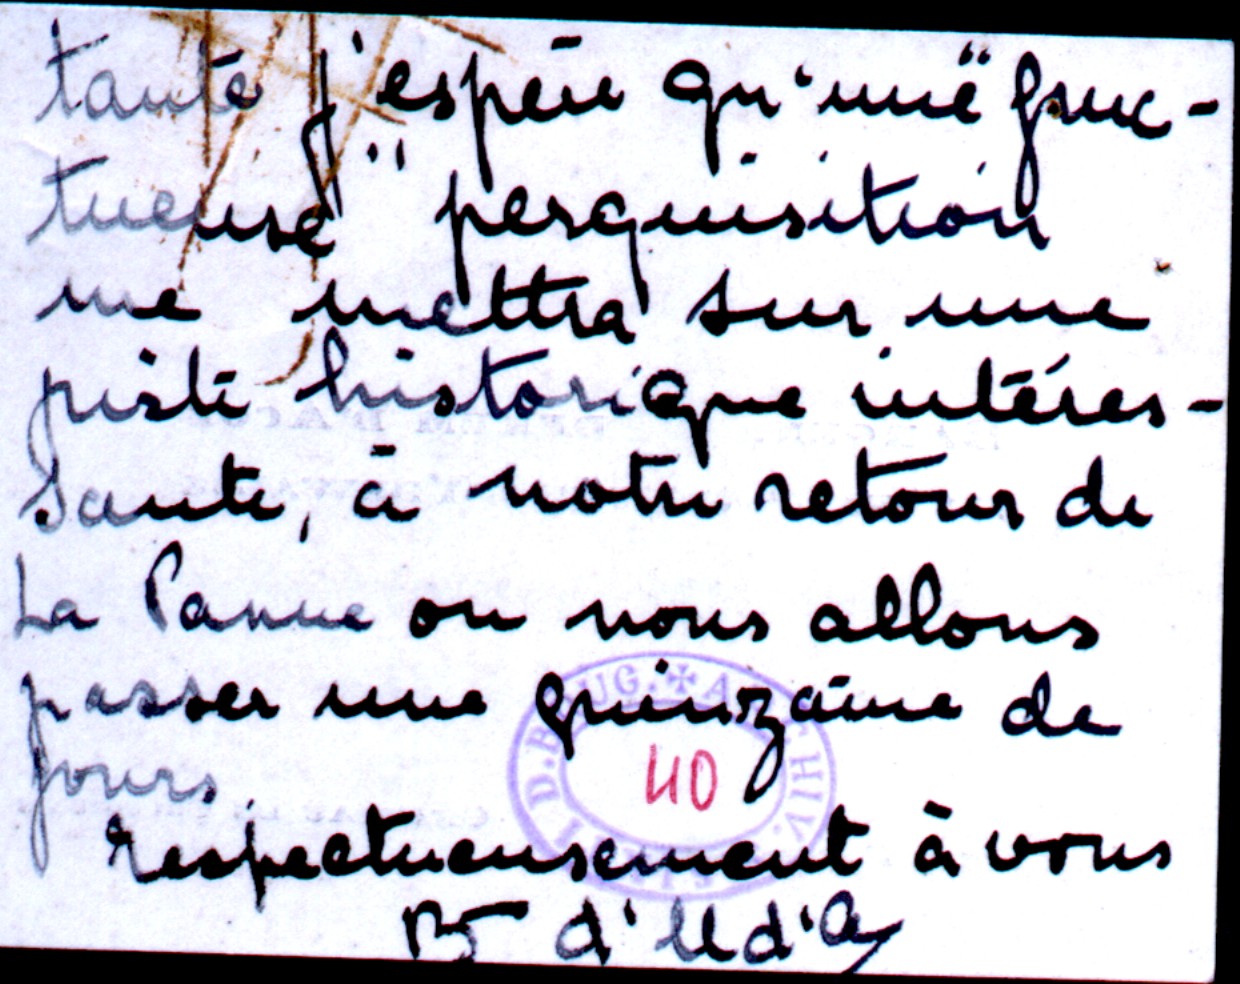 tante j'espère qu'une "fruc-
tueuse" perquisition
me mettra sur une
piste historique intéres-
sante, à notre retour de
La Panne ou nous allons
passer une quinzaine de
jours.
respectueusement à vous
40